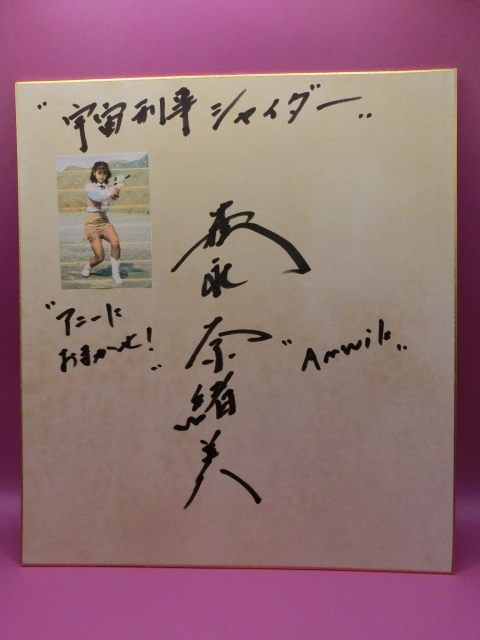 "宇宙刑事 シャイダー"
森永
奈緒美
"アニーに
おまかせ！"
"Annie"